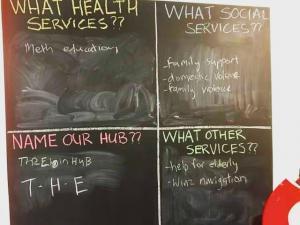 WHAT HEALTH
SERVICES??
Meth education
WHAT SOCIAL
SERVICES??
-family support
-domestic volence
-family violence
NAME OUR HUB??
HUB
T-H-E
WHAT OTHER
SERVICES??
-help for elderly
-winz navigation